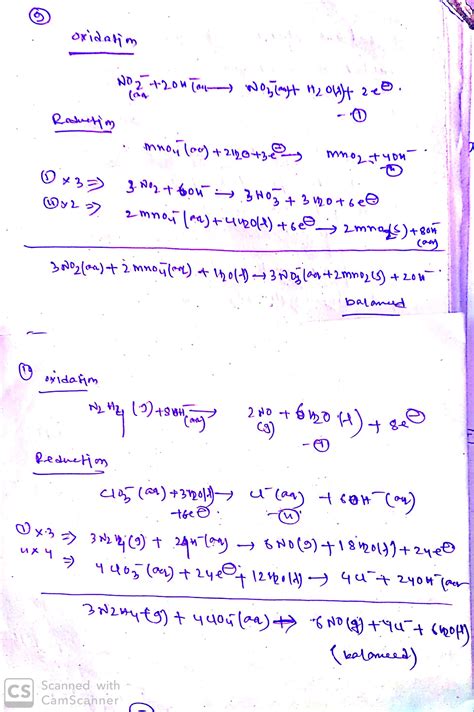 ⑨
oxidation
NO2⁻(aq) + 2OH⁻(aq) ⟶ NO3⁻(aq) + H2O(l) + 2e⊖. - ①
Reduction
MnO4⁻(aq) + 2H2O + 3e⊖ ⟶ MnO2 + 4OH⁻
① × 3 ⇒ 3 NO2⁻ + 6OH⁻ ⟶ 3 NO3⁻ + 3 H2O + 6e⊖
② × 2 ⇒ 2 MnO4⁻(aq) + 4H2O(l) + 6e⊖ ⟶ 2 MnO2(s) + 8OH⁻(aq)
3NO2(aq) + 2MnO4⁻(aq) + H2O(l) ⟶ 3NO3⁻(aq) + 2MnO2(s) + 2OH⁻
balanced
oxidation
N2H4(g) + 8OH⁻(aq) ⟶ 2NO(g) + 6H2O(l) + 8e⊖ - ①
Reduction
ClO3⁻(aq) + 3H2O(l) + 6e⊖ ⟶ Cl⁻(aq) + 6OH⁻(aq)
① × 3 ⇒ 3N2H4(g) + 24OH⁻(aq) ⟶ 6NO(g) + 18H2O(l) + 24e⊖
4 × 4 ⇒ 4ClO3⁻(aq) + 24e⊖ + 12H2O(l) ⟶ 4Cl⁻ + 24OH⁻(aq)
3N2H4(g) + 4ClO4⁻(aq) ⟶ 6NO(g) + 4Cl⁻ + 6H2O(l)
(balanced)
CS Scanned with CamScanner